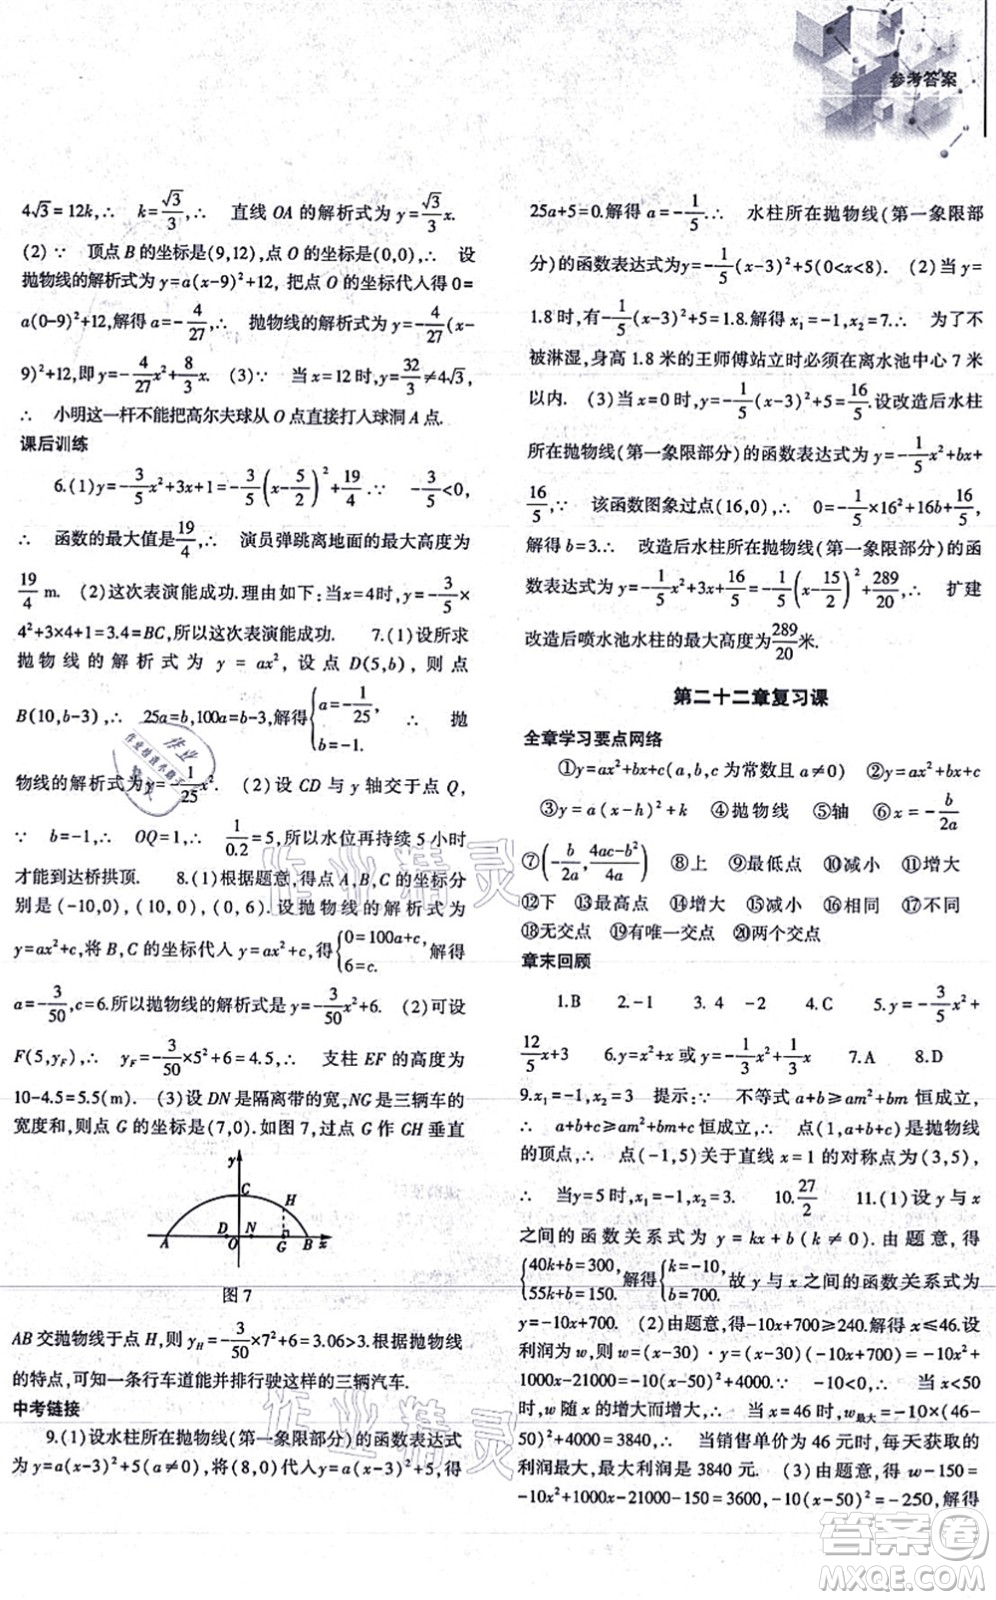 参考答案
4√3=12k,∴ k=√3/3,∴ 直线 OA 的解析式为 y=√3/3 x.
(2)∵ 顶点 B 的坐标是(9,12),点 O 的坐标是(0,0),∴ 设
抛物线的解析式为 y=a(x-9)²+12, 把点 O 的坐标代人得 0=
a(0-9)²+12,解得 a=-4/27,∴ 抛物线的解析式为 y=-4/27(x-
9)²+12,即 y=-4/27x²+8/3x. (3)∵ 当 x=12 时,y=32/3≠4√3,
∴ 小明这一杆不能把高尔夫球从 O 点直接打入球洞 A 点.
课后训练
6.(1)y=-3/5x²+3x+1=-3/5(x-5/2)²+19/4.∵ -3/5<0,
∴ 函数的最大值是19/4,∴ 演员弹跳离地面的最大高度为
19/4 m. (2)这次表演能成功.理由如下:当x=4时,y=-3/5×
4²+3×4+1=3.4=BC,所以这次表演能成功. 7.(1)设所求
抛物线的解析式为 y=ax²,设点 D(5,b),则点
B(10,b-3),∴ 25a=b,100a=b-3,解得{a=-1/25, b=-1. ∴ 抛
物线的解析式为y=-1/25x². (2)设 CD 与 y 轴交于点 Q,
∵ b=-1,∴ OQ=1,∴ 1/0.2=5,所以水位再持续 5 小时
才能到达桥拱顶. 8.(1)根据题意,得点 A,B,C 的坐标分
别是(-10,0),(10,0),(0,6).设抛物线的解析式为
y=ax²+c,将 B,C 的坐标代人,得{0=100a+c, 6=c. 解得
a=-3/50,c=6.所以抛物线的解析式是 y=-3/50x²+6. (2)可设
F(5,yF),∴ yF=-3/50×5²+6=4.5,∴ 支柱 EF 的高度为
10-4.5=5.5(m). (3)设 DN 是隔离带的宽,NG 是三辆车的
宽度和,则点 G 的坐标是(7,0).如图 7,过点 G 作 GH 垂直
y
C
H
A
D
O
N
G
B
x
图 7
AB 交抛物线于点 H,则 yH=-3/50×7²+6=3.06>3.根据抛物线
的特点,可知一条行车道能并排行驶这样的三辆汽车.
中考链接
9.(1)设水柱所在抛物线(第一象限部分)的函数表达式
为 y=a(x-3)²+5(a≠0),将(8,0)代人 y=a(x-3)²+5,得
25a+5=0.解得 a=-1/5.∴ 水柱所在抛物线(第一象限部
分)的函数表达式为y=-1/5(x-3)²+5(0<x<8). (2)当 y=
1.8 时,有-1/5(x-3)²+5=1.8.解得 x₁=-1,x₂=7.∴ 为了不
被淋湿,身高 1.8 米的王师傅站立时必须在离水池中心 7 米
以内. (3)当 x=0 时,y=-1/5(x-3)²+5=16/5.设改造后水柱
所在抛物线(第一象限部分)的函数表达式为 y=-1/5x²+bx+
16/5.∵ 该函数图象过点(16,0),∴ 0=-1/5×16²+16b+16/5,
解得 b=3.∴ 改造后水柱所在抛物线(第一象限部分)的函
数表达式为 y=-1/5x²+3x+16/5=-1/5(x-15/2)²+289/20,∴ 扩建
改造后喷水池水柱的最大高度为289/20米.
第二十二章复习课
全章学习要点网络
①y=ax²+bx+c(a,b,c 为常数且 a≠0) ②y=ax²+bx+c
③y=a(x-h)²+k ④抛物线 ⑤轴 ⑥x=-b/2a
⑦(-b/2a,4ac-b²/4a) ⑧上 ⑨最低点 ⑩减小 ⑪增大
⑫下 ⑬最高点 ⑭增大 ⑮减小 ⑯相同 ⑰不同
⑱无交点 ⑲有唯一交点 ⑳两个交点
章末回顾
1.B 2.-1 3. 4 -2 4.C 5.y=-3/5x²+
12/5x+3 6.y=x²+x 或 y=-1/3x²+1/3x 7.A 8.D
9.x₁=-1,x₂=3 提示:∵ 不等式 a+b≥am²+bm 恒成立,
∴ a+b+c≥am²+bm+c 恒成立,∴ 点(1,a+b+c)是抛物线
的顶点,∴ 点(-1,5)关于直线 x=1 的对称点为(3,5),
∴ 当y=5 时,x₁=-1,x₂=3. 10.27/2 11.(1)设 y 与 x
之间的函数关系式为 y=kx+b(k≠0).由题意,得
{40k+b=300, 55k+b=150. 解得{k=-10, b=700. 故 y 与 x 之间的函数关系式为
y=-10x+700. (2)由题意,得-10x+700≥240.解得x≤46.设
利润为 w,则 w=(x-30)·y=(x-30)(-10x+700)=-10x²+
1000x-21000=-10(x-50)²+4000.∵ -10<0,∴ 当 x<50
时,w 随 x 的增大而增大,∴ 当 x=46 时,w最大=-10×(46-
50)²+4000=3840,∴ 当销售单价为 46 元时,每天获取的
利润最大,最大利润是 3840 元. (3)由题意,得 w-150=
-10x²+1000x-21000-150=3600,-10(x-50)²=-250,解得
作业精灵
作业精灵
答案圈
MXQE.COM